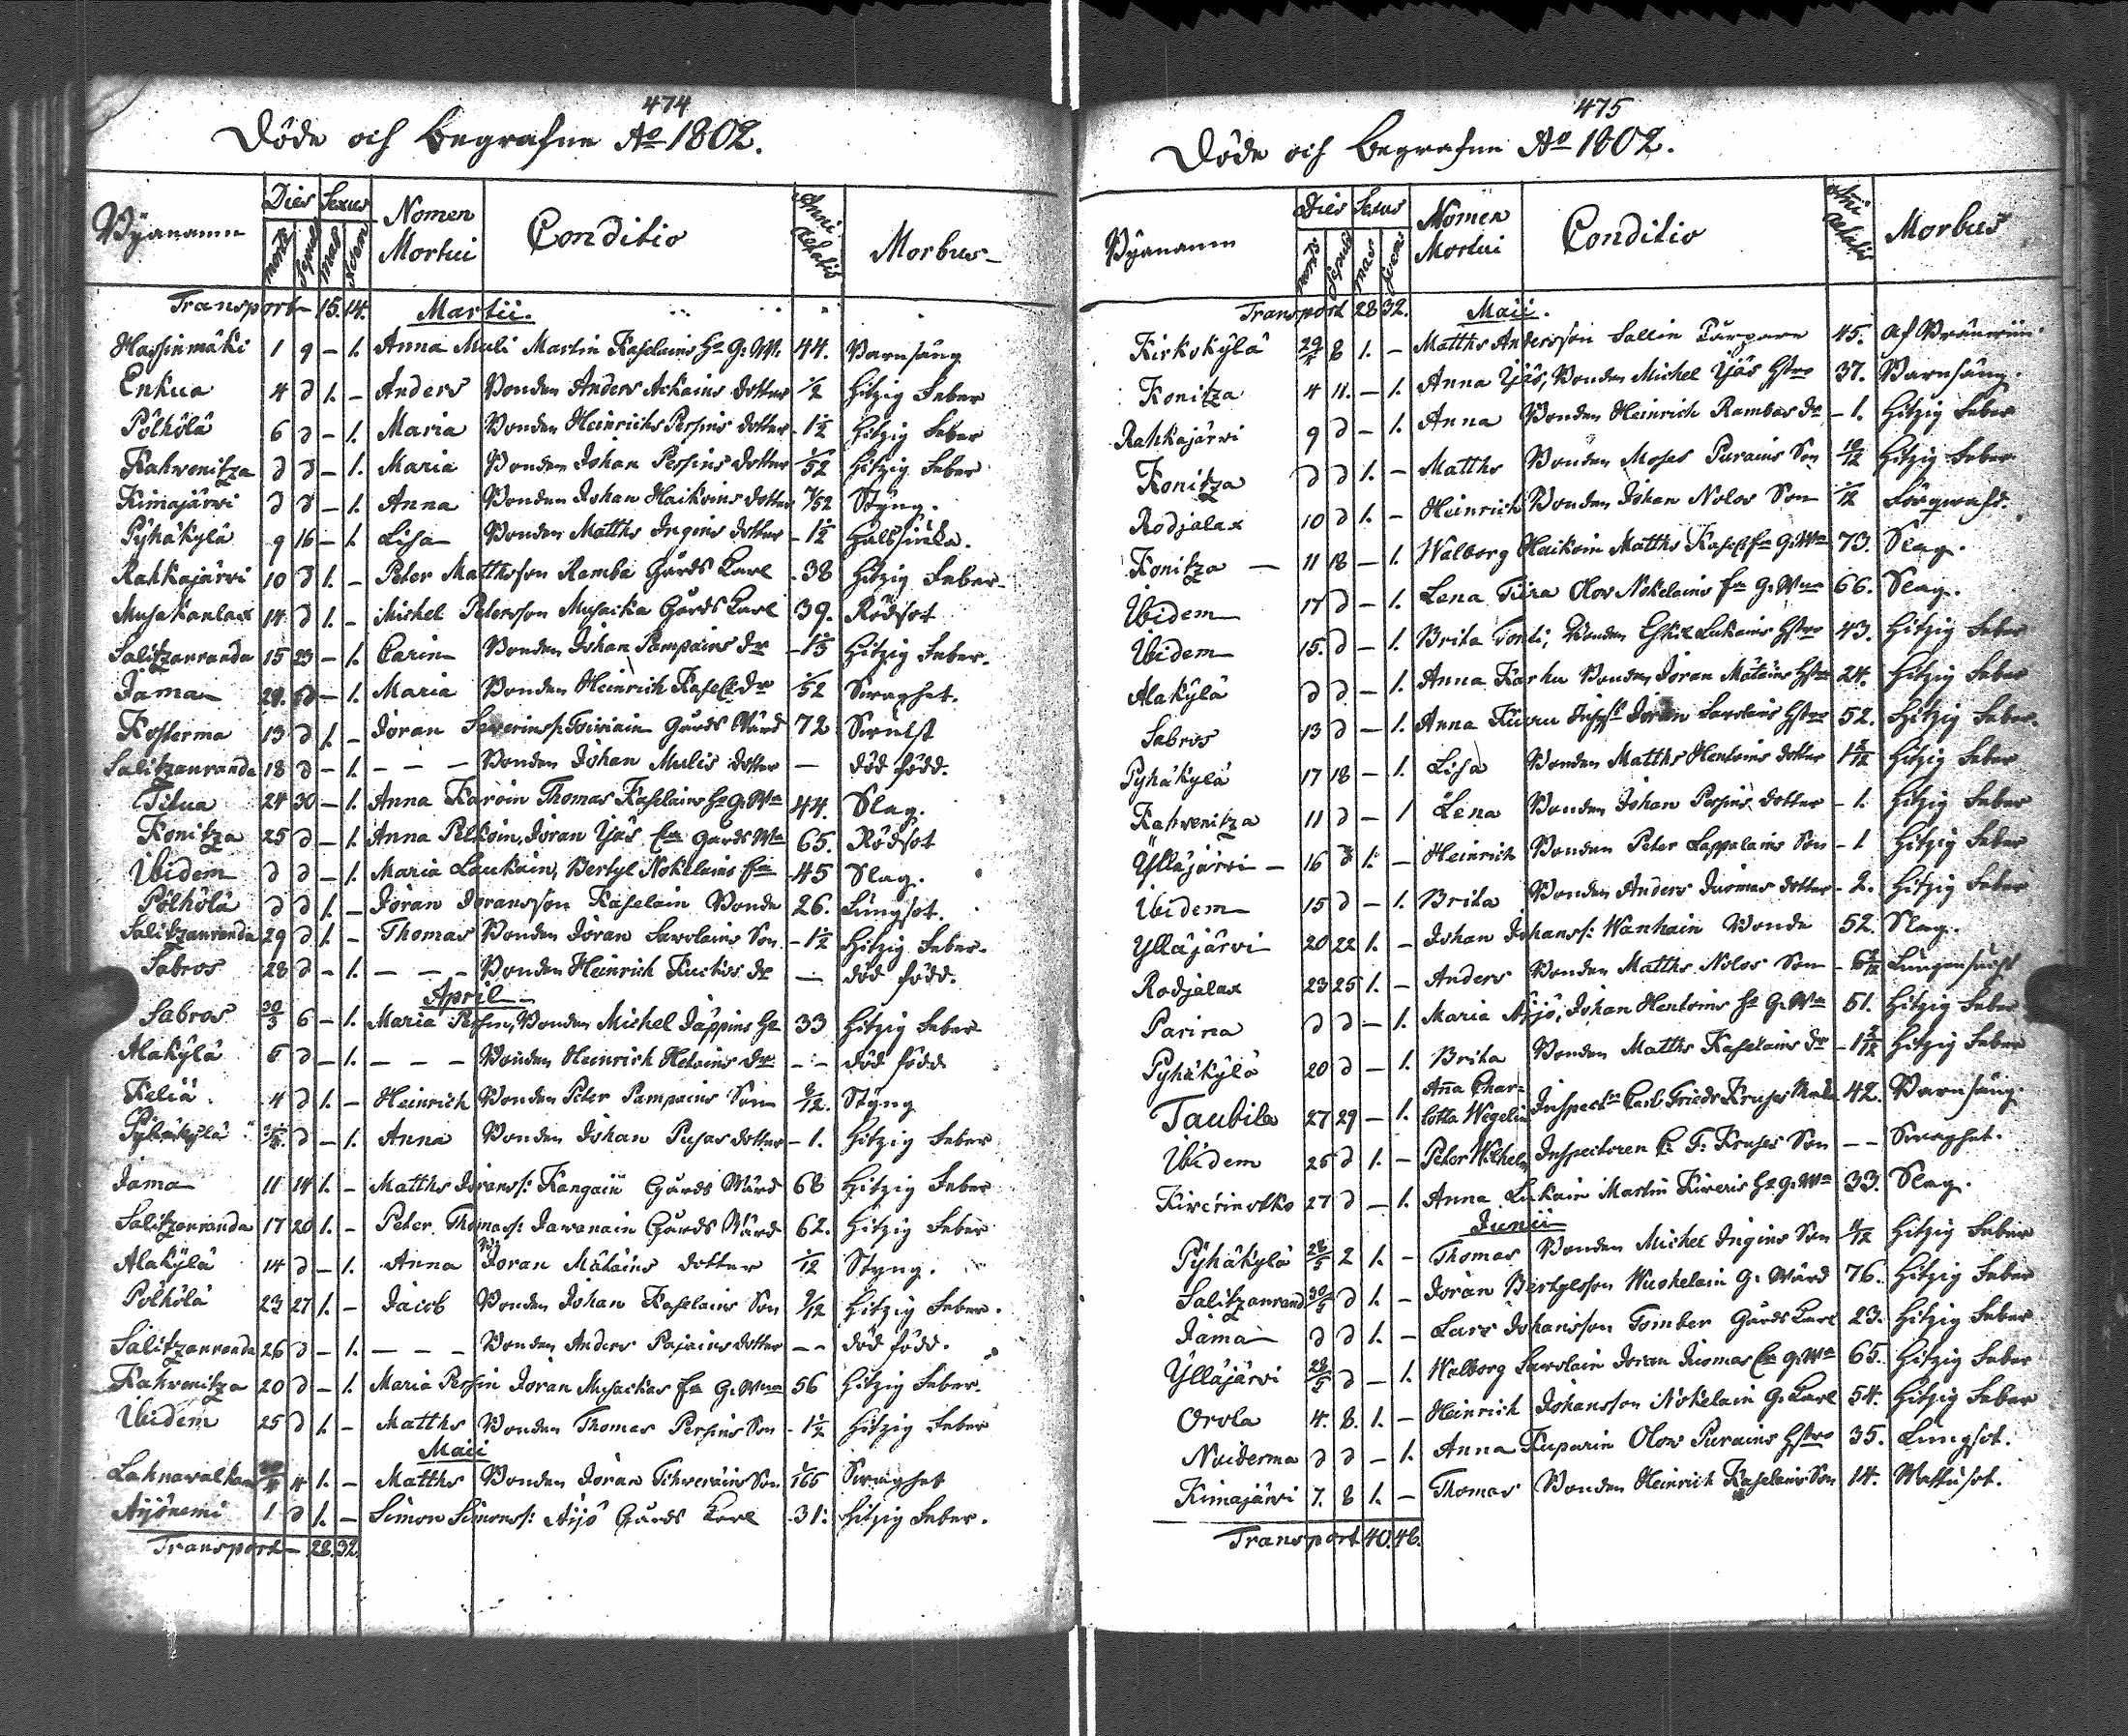 474
Döde och Begrafne Ao 1802.
Byanamn Dies Sexus Nomen Mortui Conditio Anni Aetatis Morbus
mortis sepult mas foem
Transport – 15. 14. Martii.
Hassinmäki 1 9 – 1. Anna Muli Martin Kaselains Ha G: W: 44. Barnsäng
Enkua 4 d 1. – Anders Bonden Anders Ackains dotter 1/2 Hitzig Feber
Pölhölä 6 d – 1. Maria Bonden Heinrichs Persins dotter – 1 1/2 Hitzig Feber
Kahvenitza d d – 1. Maria Bonden Johan Persins dotter 1/52 Hitzig Feber
Kimajärvi d d – 1. Anna Bonden Johan Haikoins dotter /52 Styng.
Pyhäkylä 9 16 – 1. Lisa Bonden Matths Ingins dotter – 1 1/2 Halssiuka.
Rahkajärvi 10 d 1. – Peter Matthsson Ramba Gårds Karl 38 Hitzig Feber
Musakanlax 14 d 1. – Michel Petersson Musacka Gårds Karl 39. Rödsot
Salitzanranda 15 23 – 1. Carin Bonden Johan Pampains dr – 1 Hitzig Feber.
Jama d – 1. Maria Bonden Heinrich Kasel dr 1/52 Swaghet.
Kosterma 13 d 1. – Jöran Severins: Toiviain Gårds Wärd 72 Swulst
Salitzanranda 18 d – 1. – – – Bonden Johan Mulis dotter — död född.
Titua 24 30 – 1. Anna Karvin Thomas Kaselains Ha G: Wa 44. Slag.
Konitza 25 d – 1. Anna Pelkoin, Jöran Yjäs Enka Gårds Wa 65. Rödsot
Ibidem d d – 1. Maria Laukain, Bertyl Nokelains fa 45 Slag.
Pölhölä d d 1. – Jöran Joransson Kaselain Bonde 26. Lungsot.
Salitzanranda 29 d 1. – Thomas Bonden Jöran Sawolains Son – 1 1/2 Hitzig Feber.
Sabros 28 d – 1. – – – Bonden Heinrich Kuckos dr — död född.
April
Sabros 30/3 6 – 1. Maria Persin, Bonden Michel Jäppins Ha 33 Hitzig Feber
Alakylä 5 d – 1. – – – Bonden Heinrich Hetains dr — död född
Keliä 4 d 1. – Heinrich Bonden Peter Pampains Son /12. Styng
Pyhäkylä d – 1. Anna Bonden Johan Pusas dotter – 1. Hitzig Feber
Jama 11 14 1. – Matths Jörans: Kangain Gårds Wärd 68 Hitzig Feber
Salitzanranda 17 20 1. – Peter Thomass: Jawanain Gårds Wärd 62. Hitzig Feber
Alakylä 14 d – 1. Anna Jöran Mätäins dotter /12 Styng.
Pölhölä 23 27 1. – Jacob Bonden Johan Kaselains Son 9/12 Hitzig Feber.
Salitzanranda 26 d – 1. – – – Bonden Anders Pajains dotter – – död född.
Kahvenitza 20 d – 1. Maria Persin Jöran Musackas fa G: Wna 56 Hitzig Feber.
Ibidem 25 d 1. – Matths Bonden Thomas Persins Son – 1 1/2 Hitzig Feber
Maii
Lahnavalkama 4 1. – Matths Bonden Jöran Tchweräins Son Swaghet
Ayjönemi 1 d 1. – Simon Simonss: Äyjö Gårds Karl 31: Hitzig Feber.
Transport – 28. 32.
475
Döde och Begrafne Ao 1802.
Byanamn Dies Sexus Nomen Mortui Conditio Anni Aetatis Morbus
mortis sepult mas foem
Transport 28 32. Maii.
Kirkokylä 29/ 8 1. – Matths Andersson Sallin 45. Af Bränwin
Konitza 4 11. – 1. Anna Yjäs, Bonden Michel Yjäs Hstro 37. Barnsäng.
Rahkajärvi 9 d – 1. Anna Bonden Heinrich Rambas dr – 1. Hitzig Feber
Konitza d d 1. – Matths Bonden Moses Purains Son 10/12 Hitzig Feber
Rodjalax 10 d 1. – Heinrich Bonden Johan Nolos Son /12
Konitza — 11 18 – 1. Walborg Haikoin Matths Kasel fa G: Wa 73. Slag.
Ibidem 17 d – 1. Lena Tiira Olov Nokelains fa G: Wna 66. Slag.
Ibidem 15. d – 1. Brita Tonti, Bonden Eskil Lukains Hstro 43. Hitzig Feber
Alakylä d d – 1. Anna Karhu Bonden Jöran Mätäins Hstro 24. Hitzig Feber
Sabros 13 d – 1. Anna Kuru Jöran Sawolains Hstro 52. Hitzig Feber.
Pyhäkylä 17 18 – 1. Lisa Bonden Matths Hentoins dotter 1 /12 Hitzig Feber
Kahvenitza 11 d – 1 Lena Bonden Johan Persins dotter – 1. Hitzig Feber
Ylläjärvi — 16 d 1. – Heinrich Bonden Peter Lappalains Son – 1 Hitzig Feber
Ibidem 15 d – 1. Brita Bonden Anders Juomas dotter – 2. Hitzig Feber
Ylläjärvi 20 22 1. – Johan Johanss: Wanhain Bonde 52. Slag.
Rodjalax 23 25 1. – Anders Bonden Matths Nolos Son – 6 /12 Lungensucht
Parina d d – 1. Maria Äyjö, Johan Hentoins Ha G: Wa 51. Hitzig Feber
Pyhäkylä 20 d – 1. Brita Bonden Matths Kaselains dr – 1 /12 Hitzig Feber
Taubila 27 29 – 1. Anna Charlotta Wegelin Inspectn Carl Friedr Kruses 42. Barnsäng.
Ibidem 26 d 1. – Peter Wilhelm Inspectoren C: F: Kruses Son – – Swaghet.
Kiverinotko 27 d – 1. Anna Lukain Martin Kiveris Ha G: Wa 33. Slag.
Junii
Pyhäkylä 28/5 2 1. – Thomas Bonden Michel Ingins Son /12 Hitzig Feber
Salitzanrand 30/5 d 1. – Jöran Bertylsson Nuokelain G: Wärd 76. Hitzig Feber
Jama d d 1. – Lars Johansson Tomber Gårds Karl 23. Hitzig Feber
Ylläjärvi 28/5 d – 1. Walborg Sawolain Jöran Juomas Ea G: Wa 65. Hitzig Feber
Orola 4. 8. 1. – Heinrich Johansson Nokelain G: Karl 54. Hitzig Feber
Nuiderma d d – 1. Anna Kuparin Olow Purains Hstro 35. Lungsot.
Kimajärvi 7. 8 1. – Thomas Bonden Heinrich Kaselains Son 14. Wattusot.
Transport 40. 46.